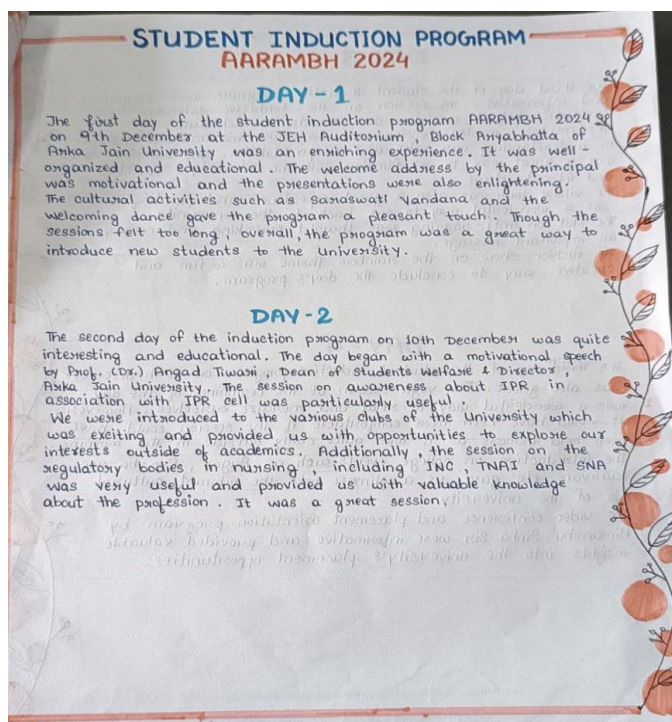 STUDENT INDUCTION PROGRAM
AARAMBH 2024
DAY-1
The first day of the student induction program AARAMBH 2024
on 9th December at the JEH Auditorium, Block Aryabhatta of
Arka Jain University was an enriching experience. It was well-
organized and educational. The welcome address by the principal
was motivational and the presentations were also enlightening.
The cultural activities such as Saraswati Vandana and the
welcoming dance gave the program a pleasant touch. Though, the
sessions felt too long, overall, the program was a great way to
introduce new students to the University.
DAY-2
The second day of the induction program on 10th December was quite
interesting and educational. The day began with a motivational speech
by Prof. (Dr.) Angad Tiwari, Dean of Students Welfare & Director,
Arka Jain University. The session on awareness about IPR in
association with IPR cell was particularly useful.
We were introduced to the various clubs of the University which
was exciting and provided us with opportunities to explore our
interests outside of academics. Additionally, the session on the
regulatory bodies in nursing, including INC, TNAI and SNA
was very useful and provided us with valuable knowledge
about the profession. It was a great session.